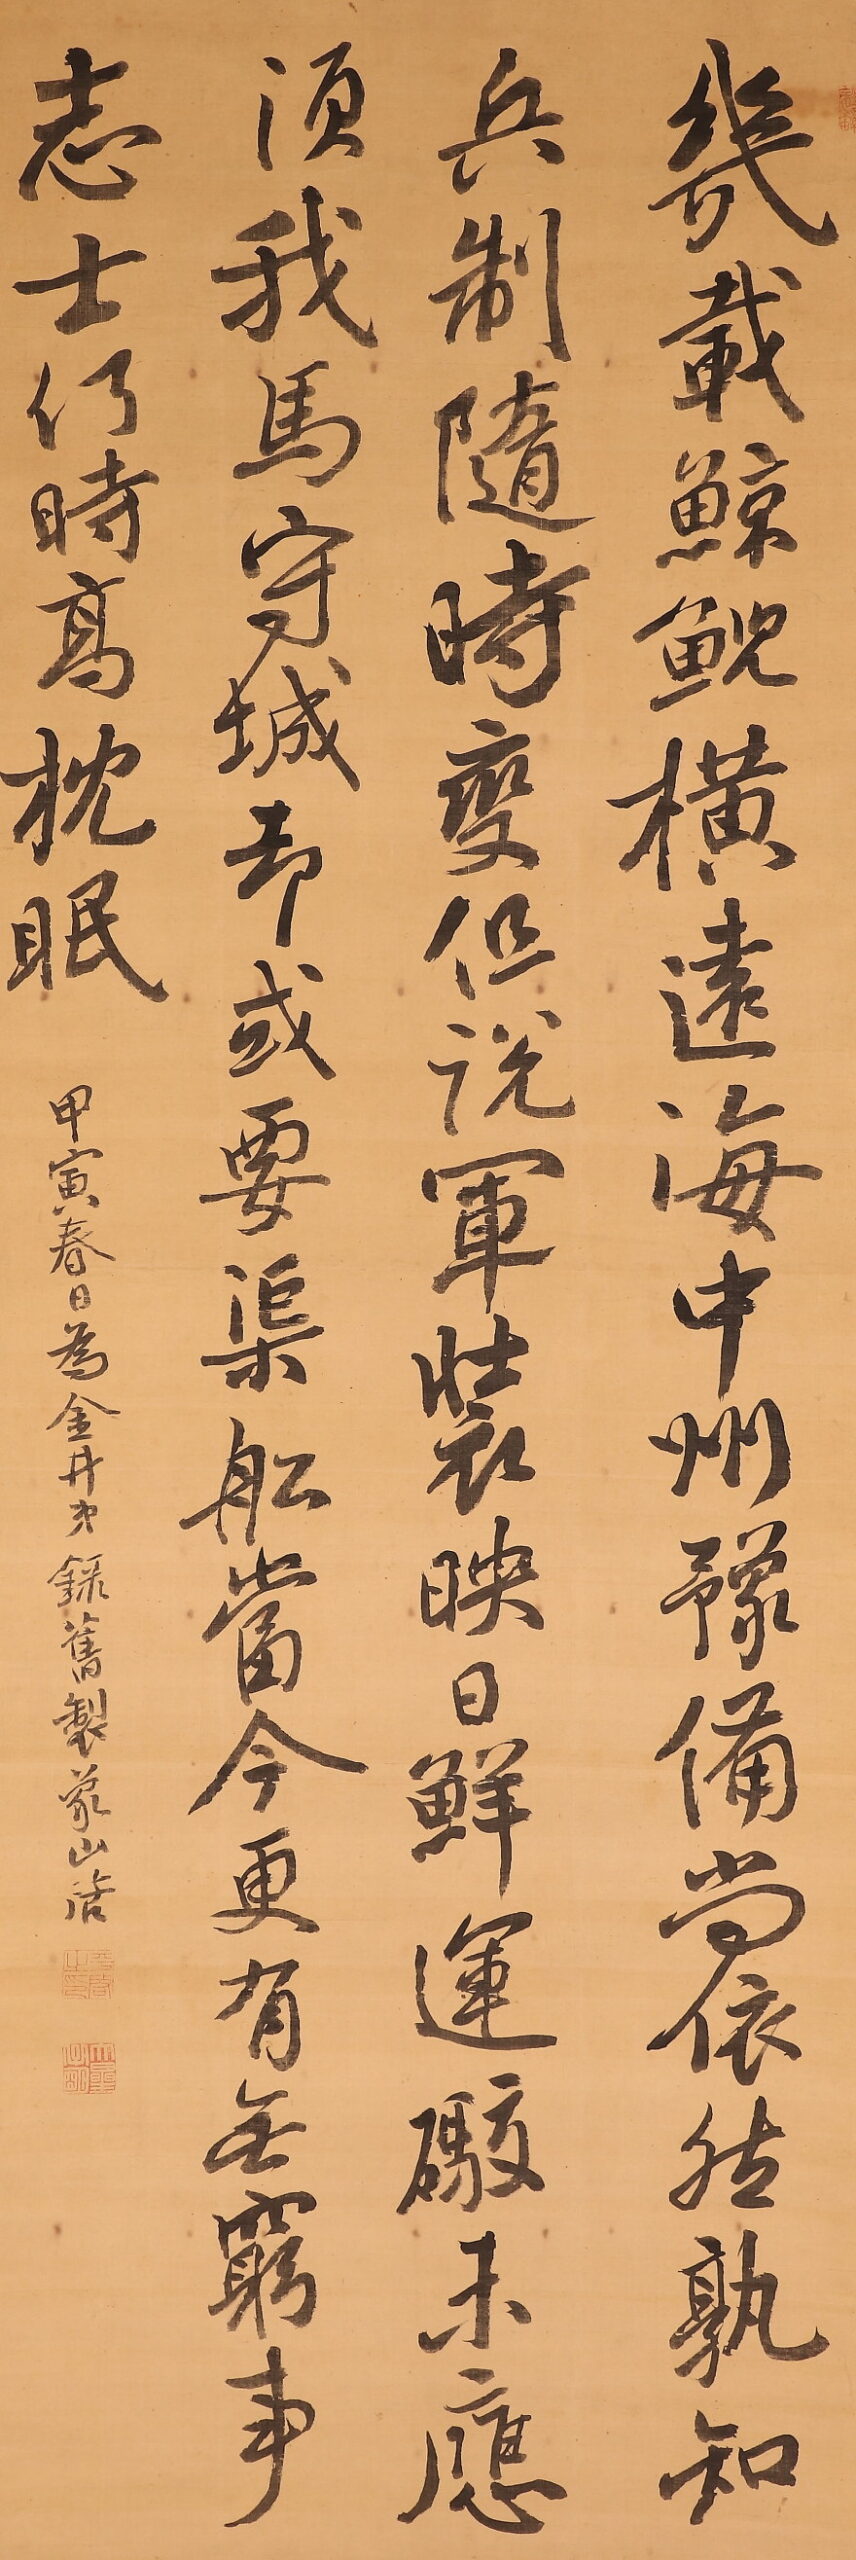 幾載鯨鯢橫遠海中州豫備尚依然孰知
兵制隨時變但說軍裝映日鮮運礮未應
須我馬守城却或要渠船當今更有無窮事
志士何時高枕眠
甲寅春日為金井 錄舊製象山啓